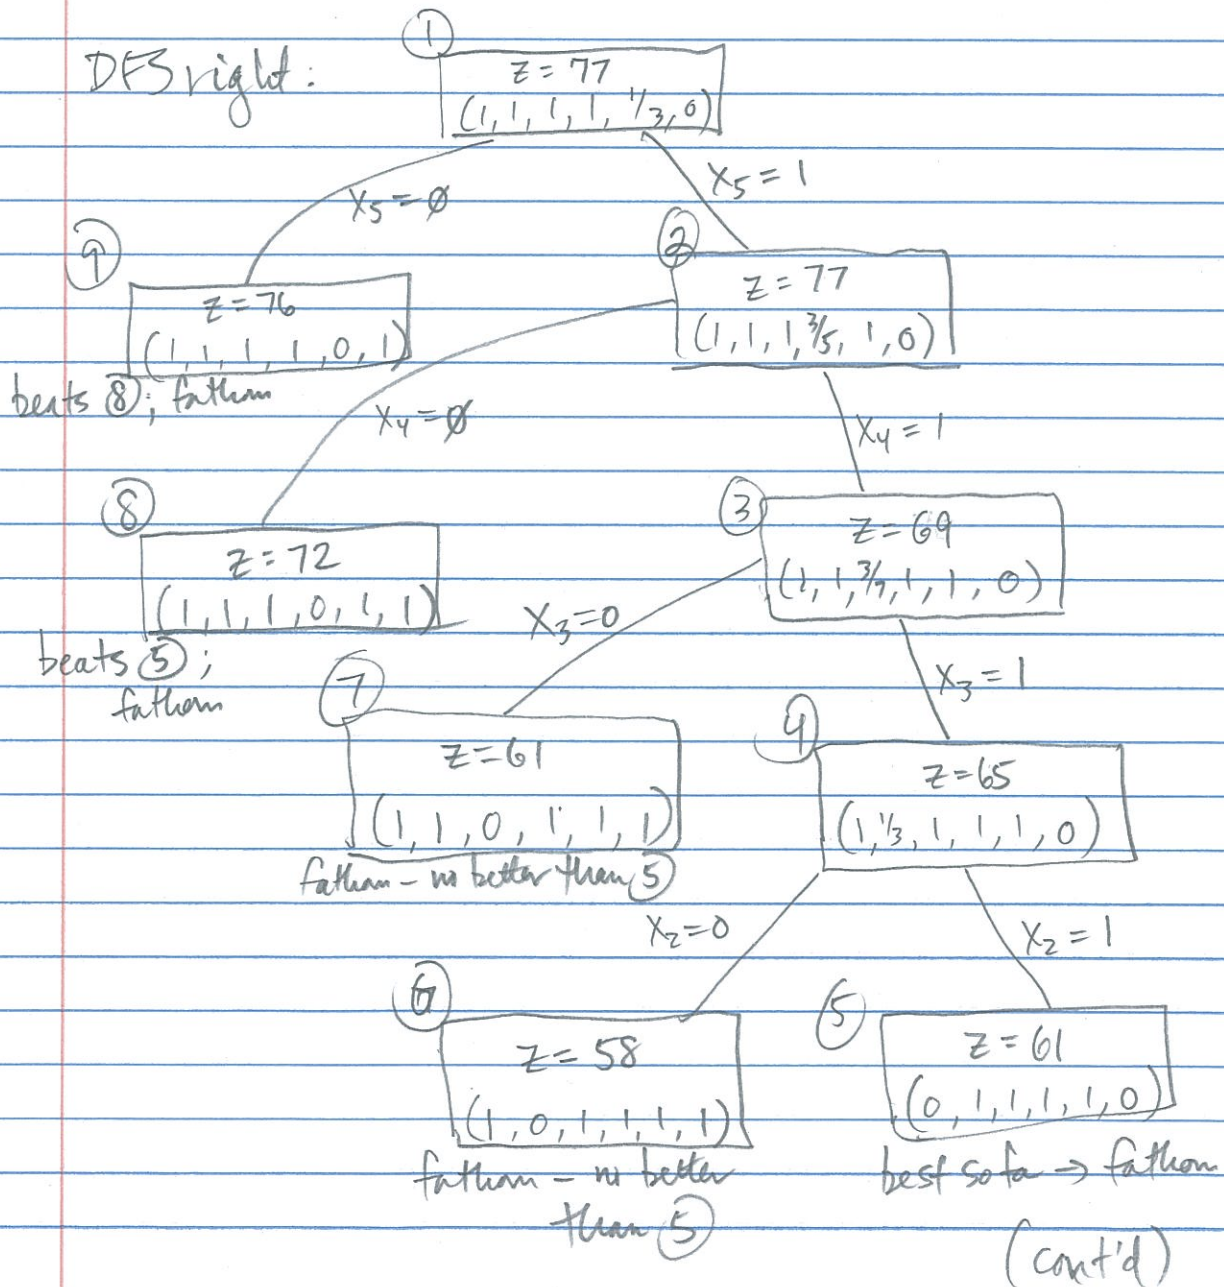 DFS right:
①
z = 77
(1, 1, 1, 1, 1/3, 0)
x5 = ∅
x5 = 1
⑨
z = 76
(1, 1, 1, 1, 0, 1)
beats ⑧; fathom
②
z = 77
(1, 1, 1, 3/5, 1, 0)
x4 = ∅
x4 = 1
⑧
z = 72
(1, 1, 1, 0, 1, 1)
beats ⑤;
fathom
③
z = 69
(1, 1, 3/7, 1, 1, 0)
x3 = 0
x3 = 1
⑦
z = 61
(1, 1, 0, 1, 1, 1)
fathom - no better than ⑤
④
z = 65
(1, 1/3, 1, 1, 1, 0)
x2 = 0
x2 = 1
⑥
z = 58
(1, 0, 1, 1, 1, 1)
fathom - no better
than ⑤
⑤
z = 61
(0, 1, 1, 1, 1, 0)
best so far → fathom
(cont'd)